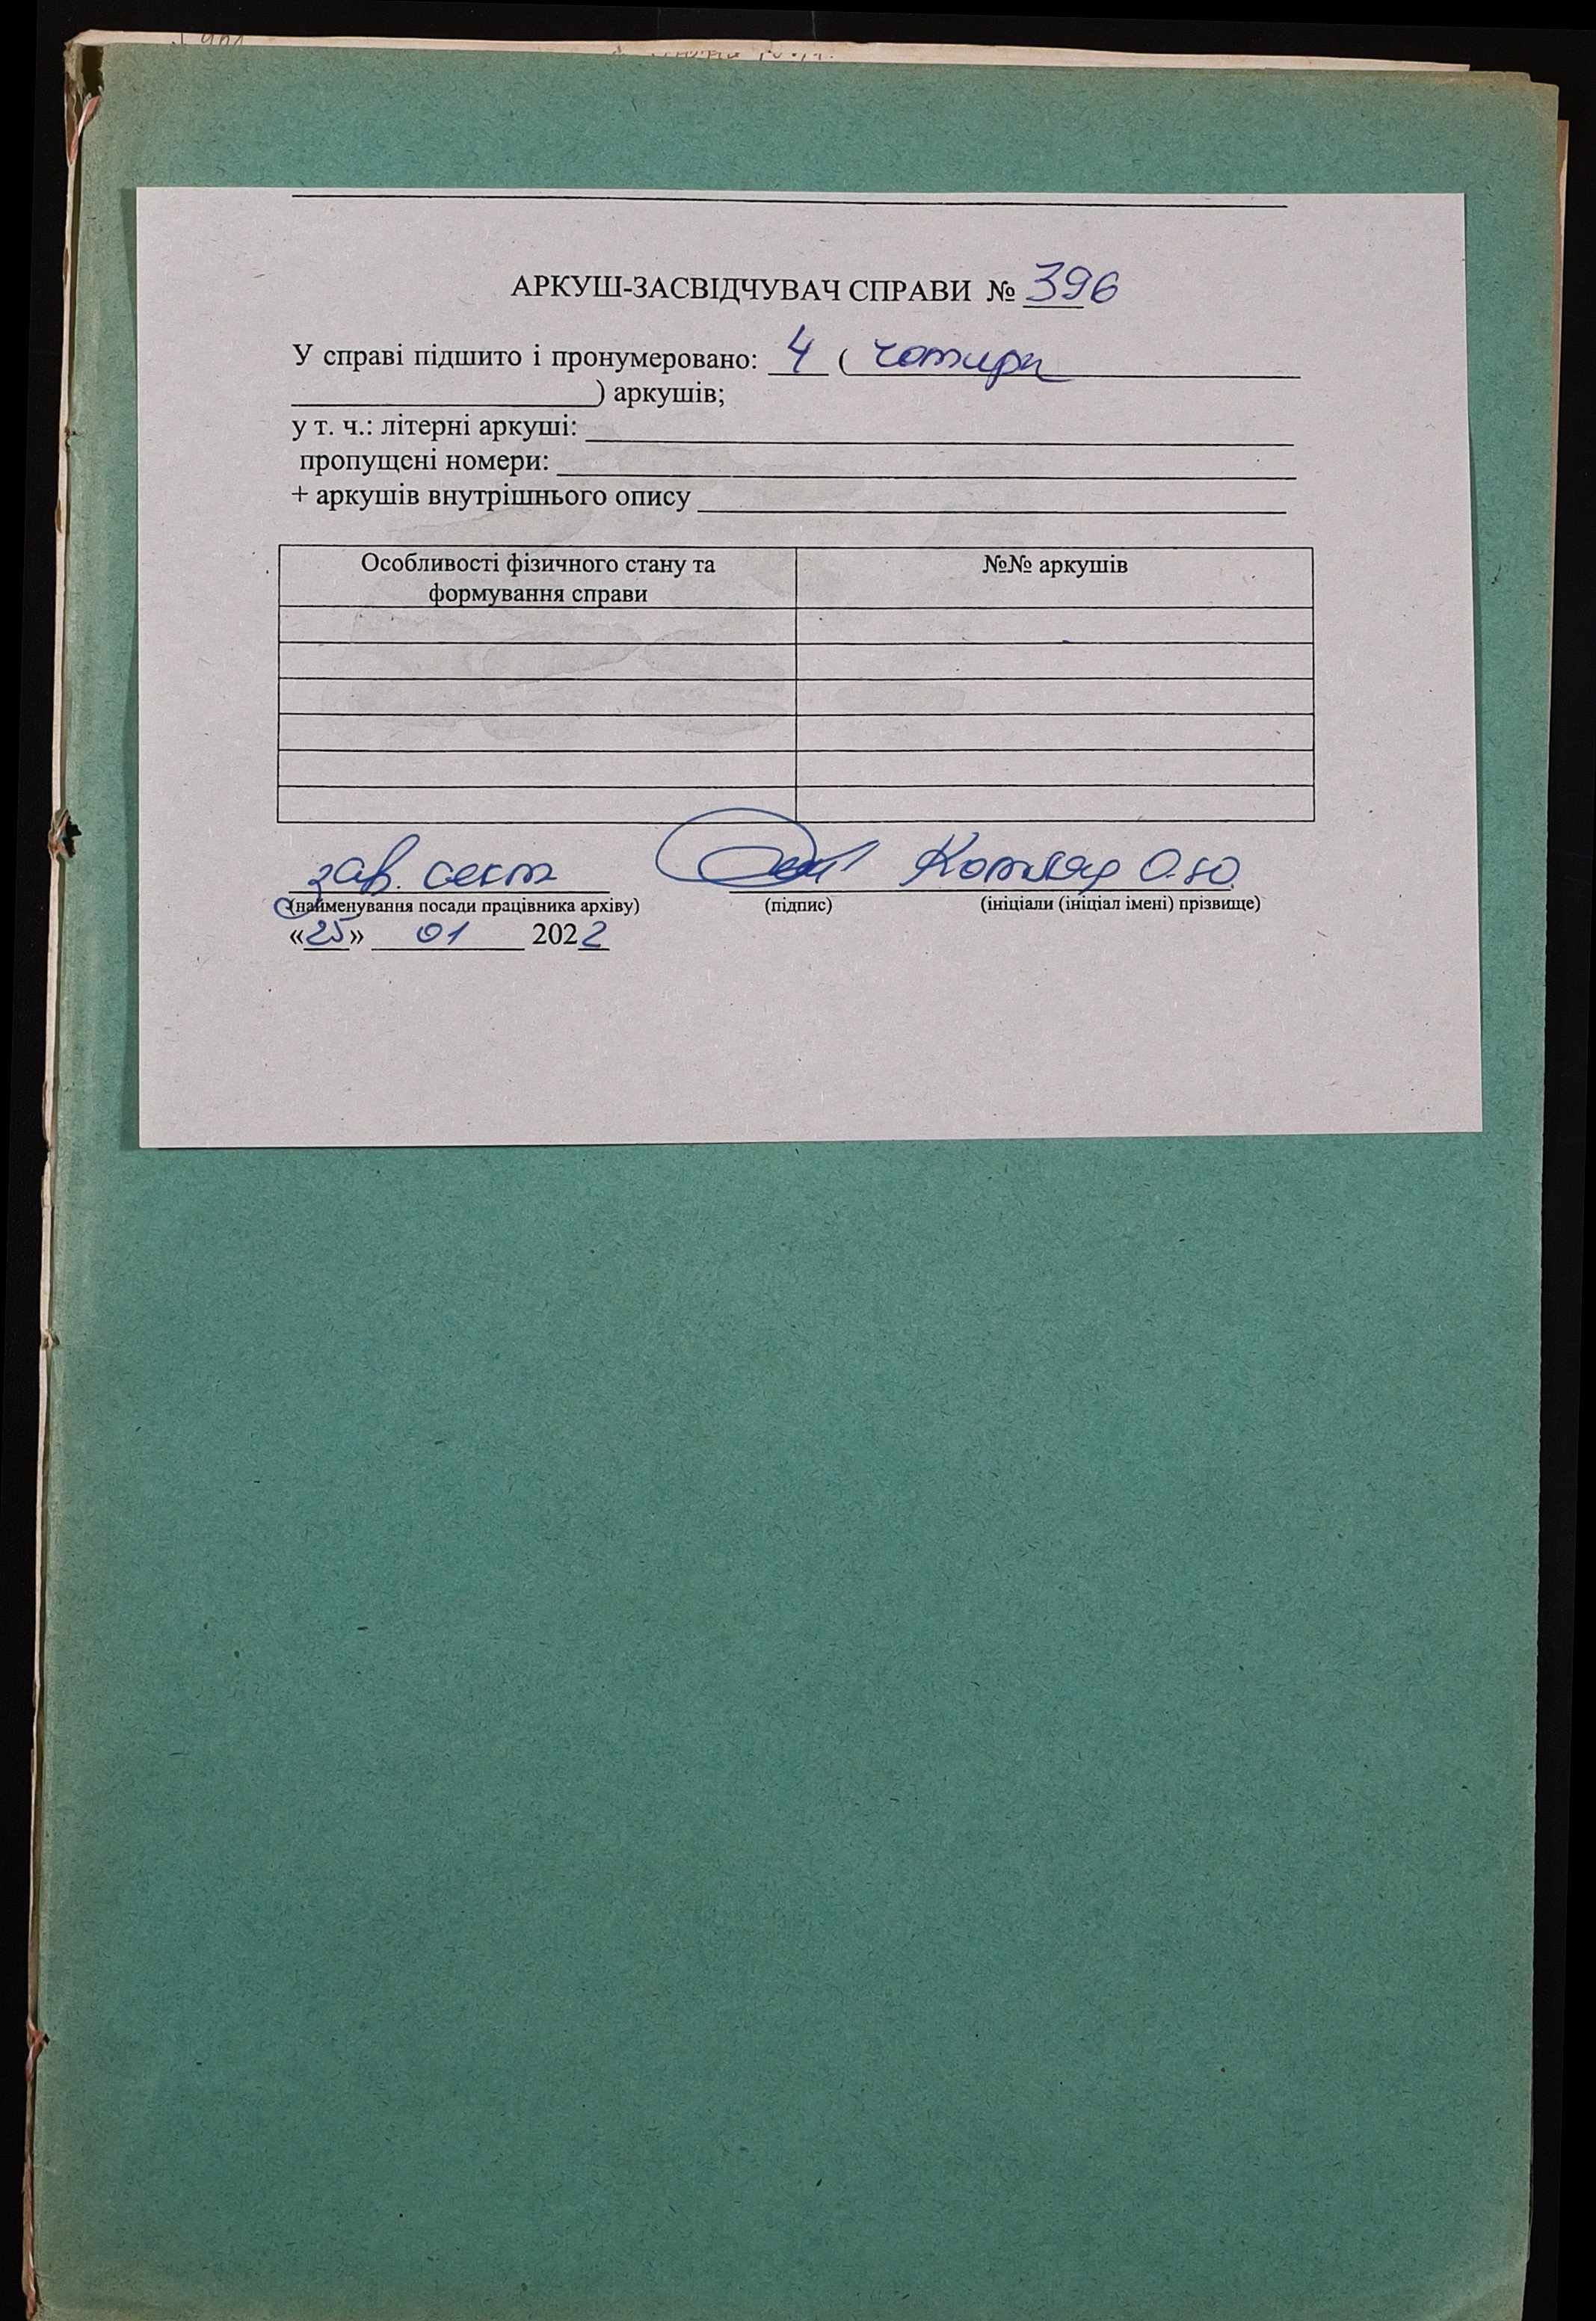 АРКУШ-ЗАСВІДЧУВАЧ СПРАВИ № 396
У справі підшито і пронумеровано: 4 ( чотири
) аркушів;
у т. ч.: літерні аркуші:
пропущені номери:
+ аркушів внутрішнього опису
Особливості фізичного стану та формування справи
№№ аркушів
зав. сект Котляр О.Ю.
(найменування посади працівника архіву) (підпис) (ініціали (ініціал імені) прізвище)
«25» 01 2022